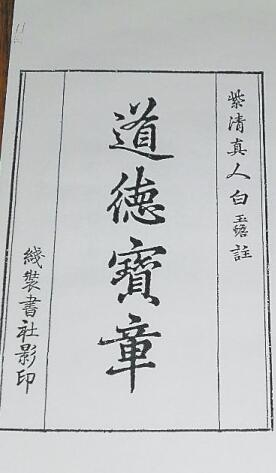 紫清真人白玉蟾註
道德寶章
綫裝書社影印